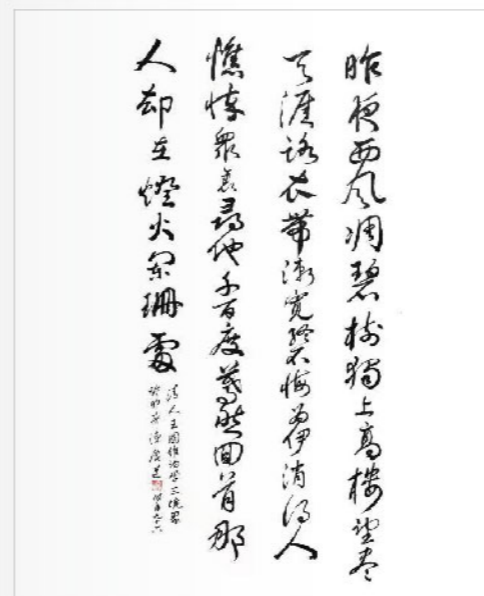 昨夜西风凋碧樹獨上高樓望盡
天涯路衣帶漸寬終不悔為伊消得人
憔悴眾裏尋他千百度驀然回首那
人卻在燈火闌珊處
清人王國維治学三境界